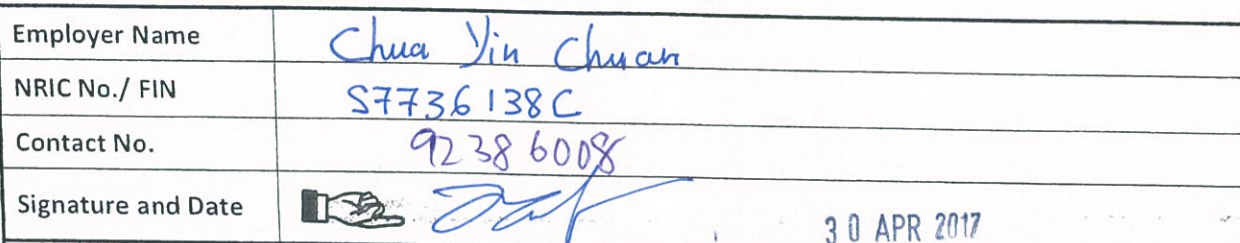 Employer Name Chua Yin Chuan
NRIC No./ FIN S7736138C
Contact No. 92386008
Signature and Date 30 APR 2017